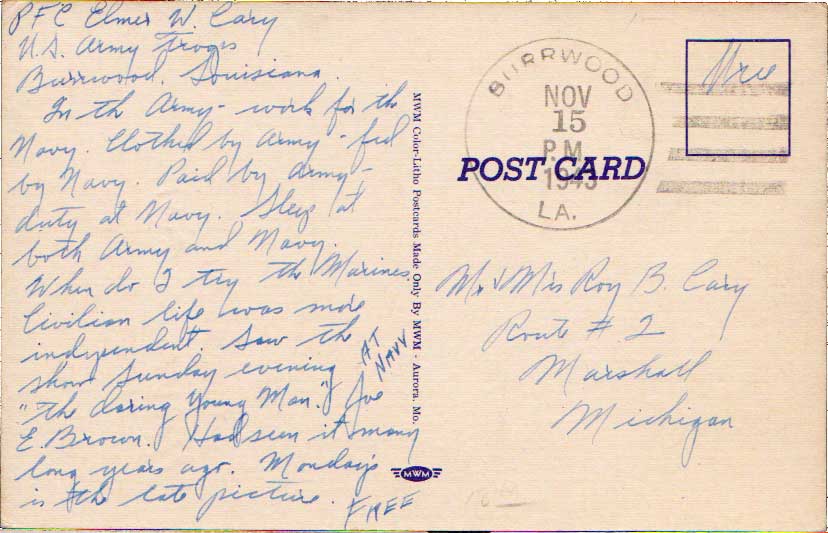 PFC Elmer W. Cary
U.S. Army Troops
Burrwood, Louisiana.
In the Army - work for the
Navy. Clothed by Army - fed
by Navy. Paid by Army -
duty at Navy. Sleep at
both Army and Navy.
When do I try the Marines.
Civilian life was more
independent. Saw the
show Sunday evening AT NAVY
"The daring Young Man." Joe
E. Brown. Had seen it many
long years ago. Monday's
is the late picture. FREE
MWM Color-Litho Postcards Made Only By MWM - Aurora, Mo.
MWM
BURRWOOD
NOV
15
P.M.
1943
LA.
POST CARD
Free
Mr & Mrs Roy B. Cary
Route # 2
Marshall
Michigan